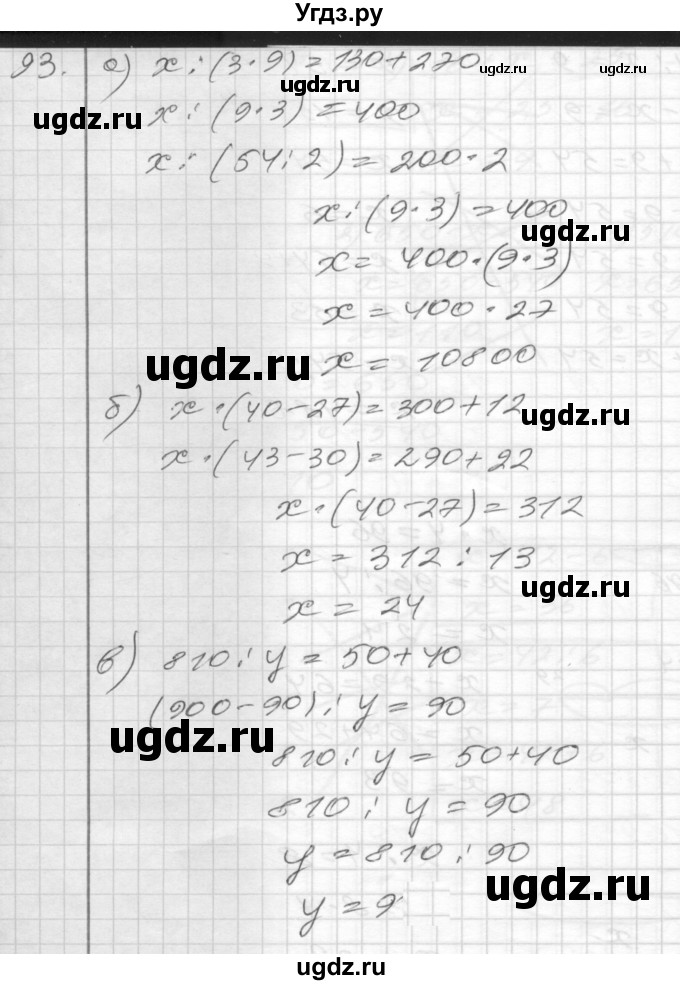 Угдз.ру
93. а) x : (3 · 9) = 130 + 270
ugdz.ru
ugdz.ru
x : (9 · 3) = 400
ugdz.ru
x : (54 : 2) = 200 · 2
x : (9 · 3) = 400
ugdz.ru
x = 400 · (9 · 3)
x = 400 · 27
x = 10800
ugdz.ru
б) x · (40 - 27) = 300 + 12
ugdz.ru
x · (43 - 30) = 290 + 22
x · (40 - 27) = 312
x = 312 : 13
ugdz.ru
x = 24
в) 810 : y = 50 + 40
(900 - 90) : y = 90
ugdz.ru
810 : y = 50 + 40
810 : y = 90
y = 810 : 90
ugdz.ru
y = 9
ugdz.ru